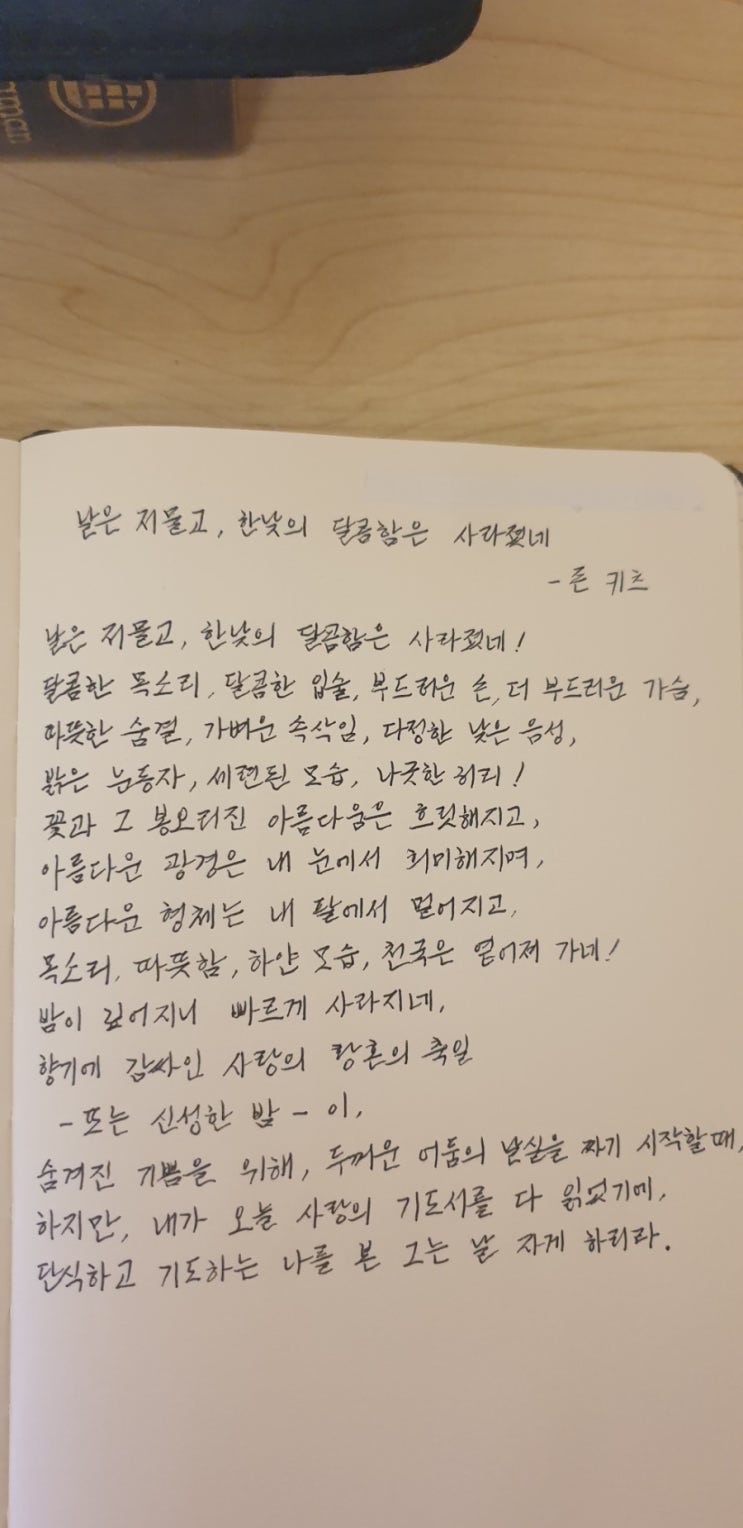 man
날은 저물고, 한낮의 달콤함은 사라졌네
- 존 키츠
날은 저물고, 한낮의 달콤함은 사라졌네!
달콤한 목소리, 달콤한 입술, 부드러운 손, 더 부드러운 가슴,
따뜻한 숨결, 가벼운 속삭임, 다정한 낮은 음성,
밝은 눈동자, 세련된 모습, 나긋한 허리!
꽃과 그 봉오터진 아름다움은 흐릿해지고,
아름다운 광경은 내 눈에서 희미해지며,
아름다운 형체는 내 팔에서 멀어지고,
목소리, 따뜻함, 하얀 모습, 천국은 옅어져 가네!
밤이 깊어지니 빠르게 사라지네,
향기에 감싸인 사랑의 황혼의 축일
- 또는 신성한 밤 - 이,
숨겨진 기쁨을 위해, 두꺼운 어둠의 날실을 짜기 시작할 때,
하지만, 내가 오늘 사랑의 기도서를 다 읽었기에,
단식하고 기도하는 나를 본 그는 날 자게 하리라.